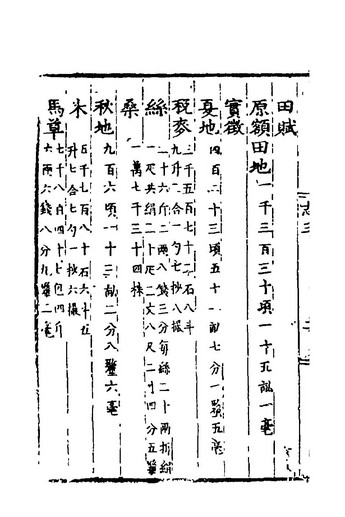 田賦
原額田地一千三百三十頃一十五畝一毫
實徴
夏地四百二十三頃五十一畝七分一釐五毫
税麥三千五百七十二石八斗
九升二合一勺七抄八撮
絲二十六斤二兩八錢三分每絲二十兩折絹
一疋共絹二十疋二丈八尺二寸四分五釐
桑一萬七千三十四株
秋地九百六頃一十三畝二分八釐六毫
米五千七百八十石六斗五
升七合七勺一抄六撮
馬草七千八百四十七包四斤
六兩六錢八分九釐二毫